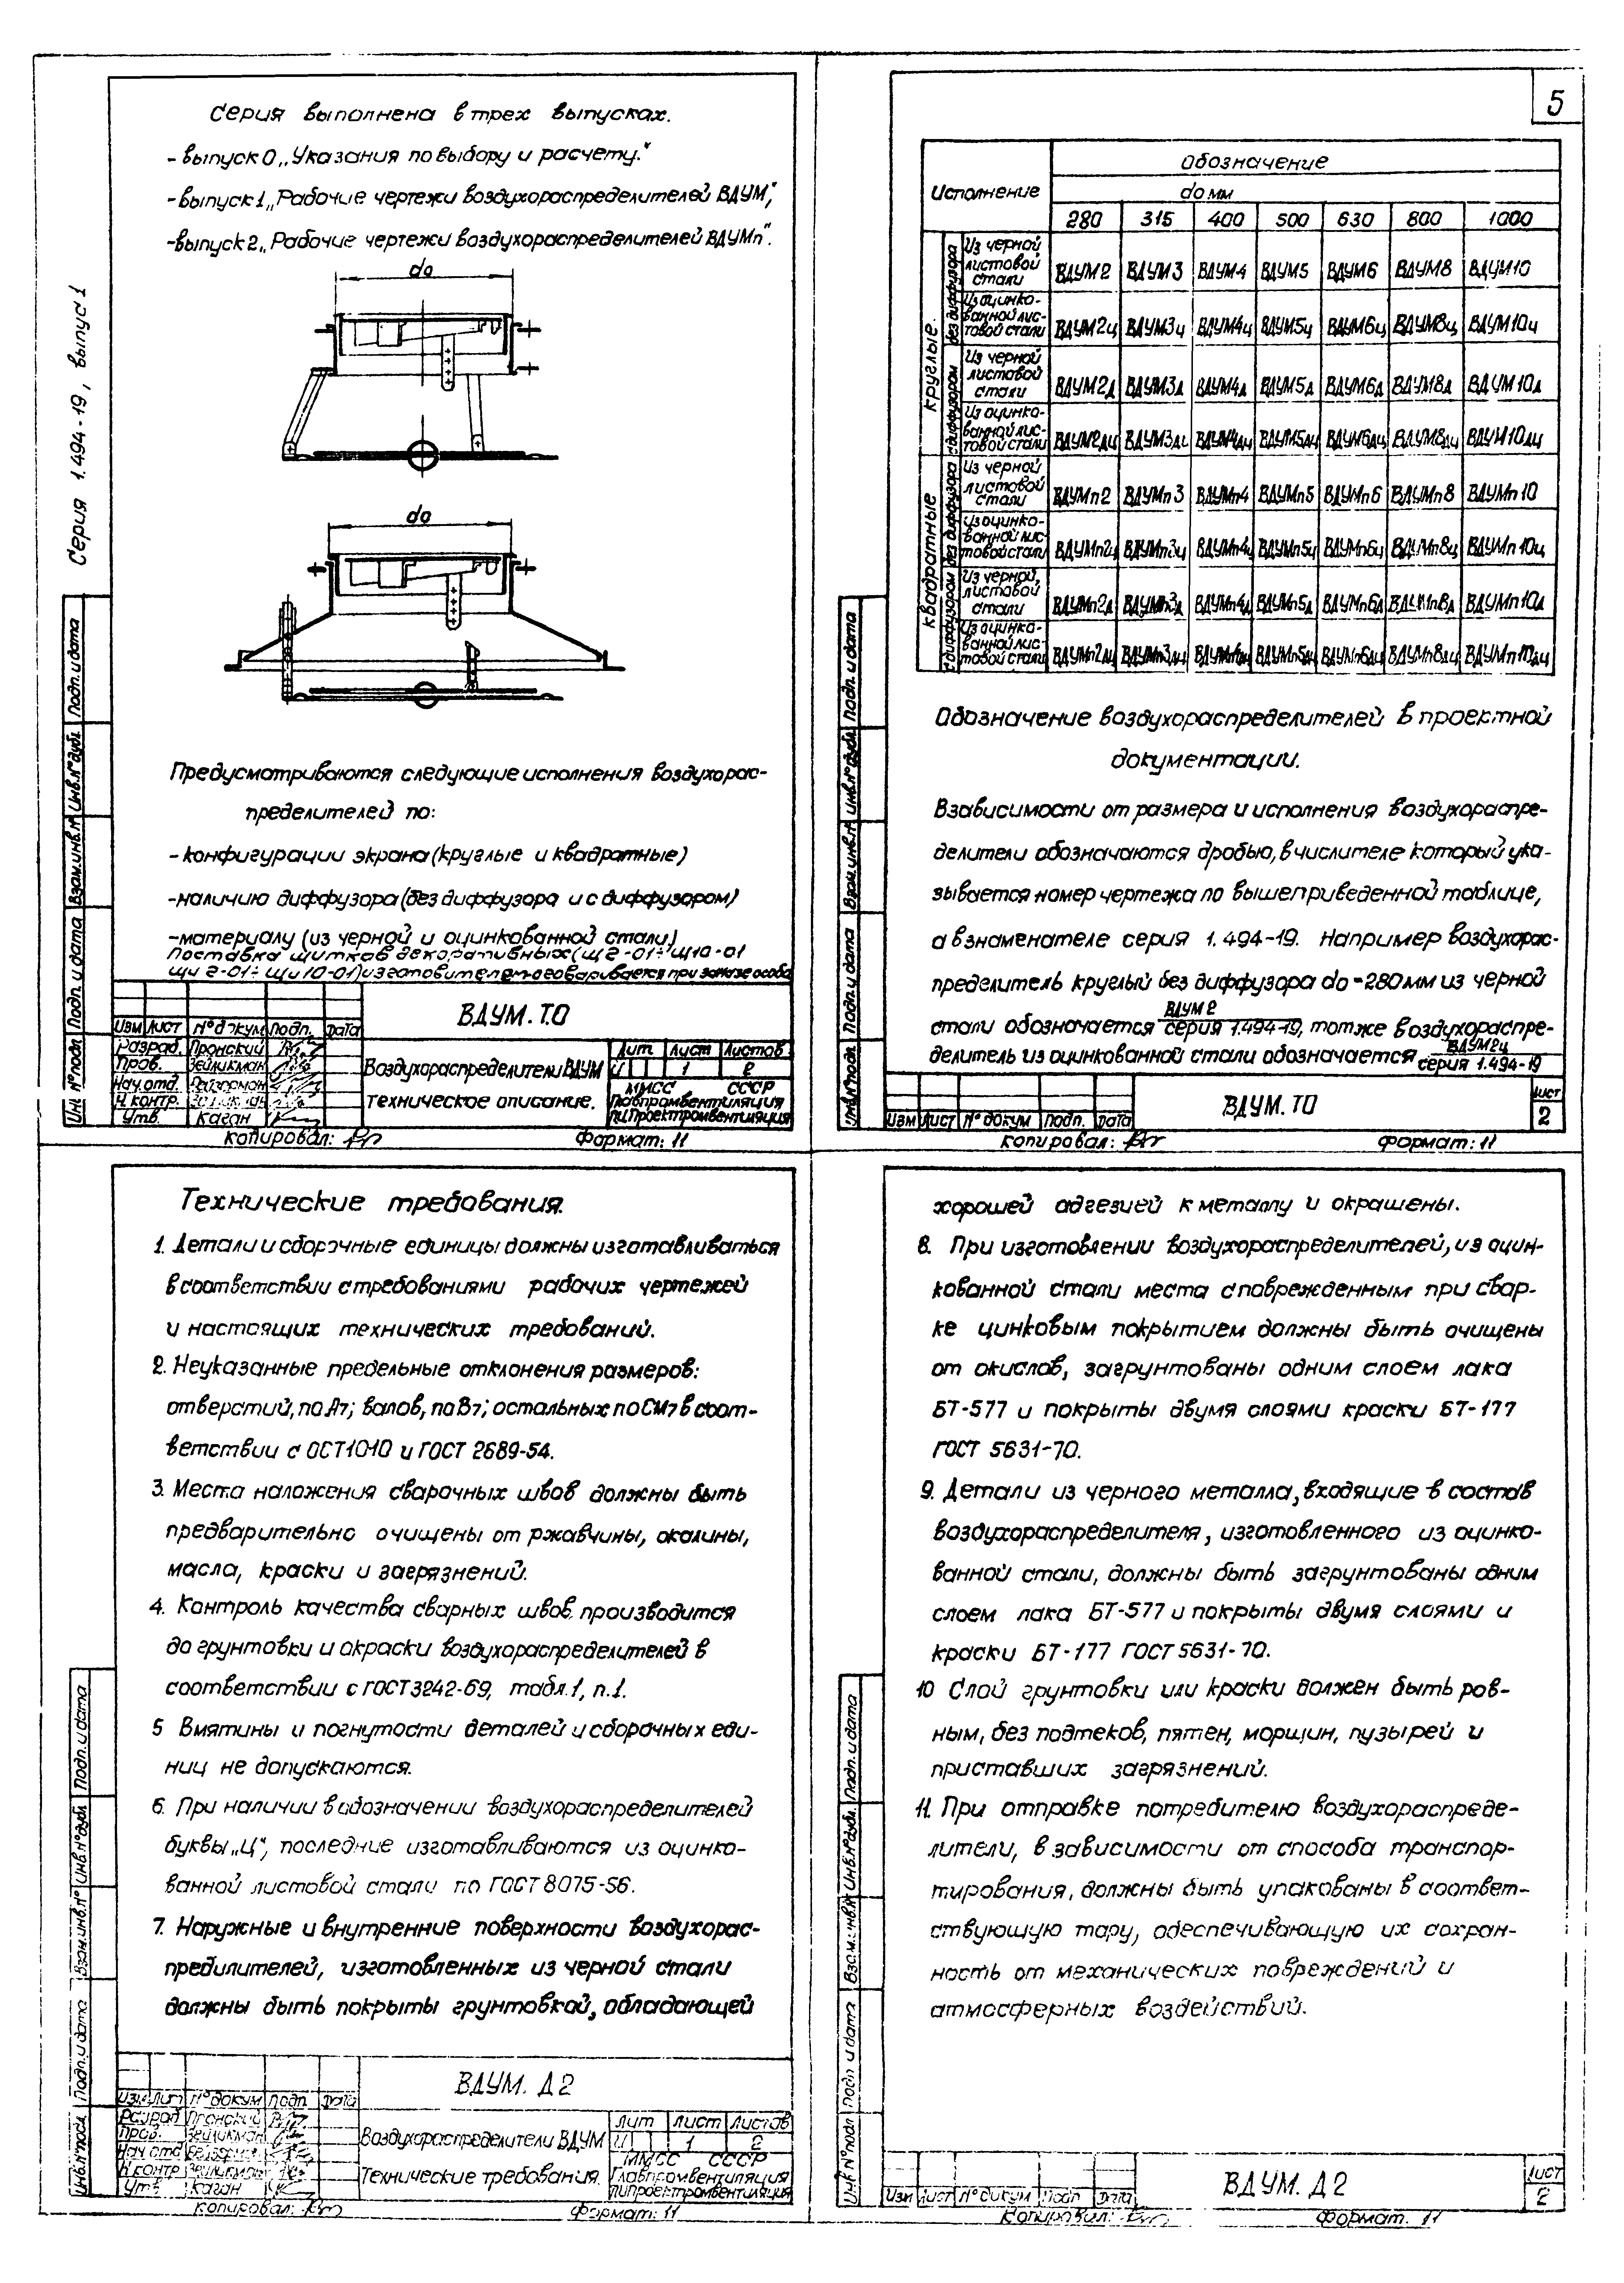 Серия 1.494-19, выпуск 1
Серия выполнена в трех выпусках.
- выпуск 0 „Указания по выбору и расчету."
- выпуск 1 „Рабочие чертежи воздухораспределителей ВДУМ",
- выпуск 2 „Рабочие чертежи воздухораспределителей ВДУМп".
do
do
Предусматриваются следующие исполнения воздухорас-
пределителей по:
- конфигурации экрана (круглые и квадратные)
- наличию диффузора (без диффузора и с диффузором)
- материалу (из черной и оцинкованной стали)
Поставка щитков декоративных (Щ2-01÷Щ10-01
Щц 2-01÷Щц 10-01) изготовителем оговаривается при заказе особо
Инв.№подл Подп. и дата Взам.инв.№ Инв.№дубл. Подп. и дата
Изм Лист №докум Подп. Дата
Разраб. Пронский
Пров. Зейликман
Нач.отд.
Н.контр. Зейликман
Утв. Каган
ВДУМ.ТО
Воздухораспределители ВДУМ
техническое описание.
Лит Лист Листов
И 1 2
ММСС СССР
Главпромвентиляция
ГПИПроектпромвентиляция
Копировал:
Формат: 11
5
Исполнение
Обозначение
do мм
280 315 400 500 630 800 1000
Круглые
без диффузора
Из черной листовой стали ВДУМ2 ВДУМ3 ВДУМ4 ВДУМ5 ВДУМ6 ВДУМ8 ВДУМ10
Из оцинко-ванной лис-товой стали ВДУМ2ц ВДУМ3ц ВДУМ4ц ВДУМ5ц ВДУМ6ц ВДУМ8ц ВДУМ10ц
с диффузором
Из черной листовой стали ВДУМ2д ВДУМ3д ВДУМ4д ВДУМ5д ВДУМ6д ВДУМ8д ВДУМ10д
Из оцинко-ванной лис-товой стали ВДУМ2дц ВДУМ3дц ВДУМ4дц ВДУМ5дц ВДУМ6дц ВДУМ8дц ВДУМ10дц
Квадратные
без диффузора
Из черной листовой стали ВДУМп2 ВДУМп3 ВДУМп4 ВДУМп5 ВДУМп6 ВДУМп8 ВДУМп10
Из оцинко-ванной лис-товой стали ВДУМп2ц ВДУМп3ц ВДУМп4ц ВДУМп5ц ВДУМп6ц ВДУМп8ц ВДУМп10ц
с диффузором
Из черной листовой стали ВДУМп2д ВДУМп3д ВДУМп4д ВДУМп5д ВДУМп6д ВДУМп8д ВДУМп10д
Из оцинко-ванной лис-товой стали ВДУМп2дц ВДУМп3дц ВДУМп4дц ВДУМп5дц ВДУМп6дц ВДУМп8дц ВДУМп10дц
Обозначение воздухораспределителей в проектной
документации.
В зависимости от размера и исполнения воздухораспре-
делители обозначаются дробью, в числителе который ука-
зывается номер чертежа по вышеприведенной таблице,
а в знаменателе серия 1.494-19. Например воздухорас-
пределитель круглый без диффузора do=280мм из черной
стали обозначается ВДУМ2 / серия 1.494-19, тот же воздухораспре-
делитель из оцинкованной стали обозначается ВДУМ2ц / серия 1.494-19
Инв.№подл. Подп. и дата Взам.инв.№ Инв.№дубл. Подп. и дата
Изм Лист №докум Подп. Дата
ВДУМ.ТО
Лист
2
Копировал:
Формат: 11
Технические требования.
1. Детали и сборочные единицы должны изготавливаться
в соответствии с требованиями рабочих чертежей
и настоящих технических требований.
2. Неуказанные предельные отклонения размеров:
отверстий, по А7; валов, по В7; остальных по СМ7 в соот-
ветствии с ОСТ1010 и ГОСТ 2689-54.
3. Места наложения сварочных швов должны быть
предварительно очищены от ржавчины, окалины,
масла, краски и загрязнений.
4. Контроль качества сварных швов производится
до грунтовки и окраски воздухораспределителей в
соответствии с ГОСТ 3242-69, табл.1, п.1.
5 Вмятины и погнутости деталей и сборочных еди-
ниц не допускаются.
6. При наличии в обозначении воздухораспределителей
буквы „Ц", последние изготавливаются из оцинко-
ванной листовой стали по ГОСТ 8075-56.
7. Наружные и внутренние поверхности воздухорас-
предилителей, изготовленных из черной стали
должны быть покрыты грунтовкой, обладающей
Инв.№подл Подп. и дата Взам.инв.№ Инв.№дубл. Подп. и дата
Изм Лит №докум Подп Дата
Разраб Пронский
Пров. Зейликман
Нач отд
Н контр Зейликман
Утв Каган
ВДУМ. Д2
Воздухораспределители ВДУМ
Технические требования.
Лит Лист Листов
И 1 2
ММСС СССР
Главпромвентиляция
ГПИпроектпромвентиляция
Копировал:
Формат: 11
хорошей адгезией к металлу и окрашены.
8. При изготовлении воздухораспределителей, из оцин-
кованной стали места с поврежденным при свар-
ке цинковым покрытием должны быть очищены
от окислов, загрунтованы одним слоем лака
БТ-577 и покрыты двумя слоями краски БТ-177
ГОСТ 5631-70.
9. Детали из черного металла, входящие в состав
воздухораспределителя, изготовленного из оцинко-
ванной стали, должны быть загрунтованы одним
слоем лака БТ-577 и покрыты двумя слоями и
краски БТ-177 ГОСТ 5631-70.
10 Слой грунтовки или краски должен быть ров-
ным, без подтеков, пятен, морщин, пузырей и
приставших загрязнений.
11. При отправке потребителю воздухораспреде-
лители, в зависимости от способа транспор-
тирования, должны быть упакованы в соответ-
ствующую тару, обеспечивающую их сохран-
ность от механических повреждений и
атмосферных воздействий.
Инв №подл Подп и дата Взам.инв.№ Инв.№дубл. Подп. и дата
Изм Лист №докум Подп Дата
ВДУМ. Д2
Лист
2
Копировал:
Формат. 11